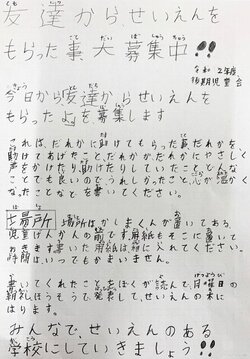 友達からせいえんを
もらった事大募集中!!
令和2年度
後期児童会
今日から友達からせいえんを
もらったよを募集します
これは、だれかに助けてもらった事だれかを
助けてあげた
声をかけたり助けたりしていたことなど
ことでも良いのでうれしかったこと心が温かく
なったことなどを書いてください。
場所
場所はかしまくんが置いてある
児童げんかん前です。用紙もそこに置いて
おきます。書いた用紙は箱に入れてください。
時間はいつでもかまいません。
書いてくれたことをぼくが読んで月曜日の
朝
はります。
みんなで、せいえんのある
学校にしていきましょう!!